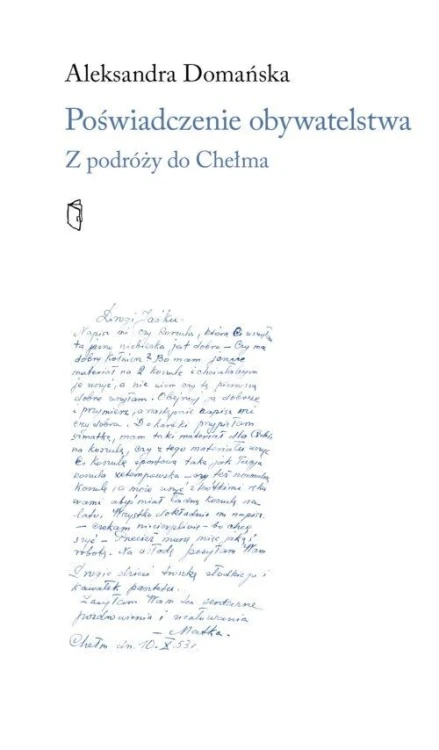 Aleksandra Domańska
Poświadczenie obywatelstwa
Z podróży do Chełma
Drogi Jaśku.
Napisz mi czy koszula, którą Ci uszyłam
ta jasno niebieska jest dobra – Czy ma
dobry kołnierz? Bo mam jeszcze
materiał na 2 koszule i chciałabym
je uszyć, a nie wiem czy tę pierwszą
dobrze uszyłam. Obejrzyj ją dobrze
i przymierz, a następnie napisz mi
czy dobra. Do kartki
mam taki materiał dla Ciebie
na koszulę, czy z tego materiału uszyć
Ci koszulę sportową taką jak Twoja
koszula – czy też normalną
Koszulę ja mogę uszyć z krótkimi ręka
wami abyś miał ładną koszulę na
lato. Wszystko dokładnie mi napisz.
– czekam niecierpliwie – bo chcę
szyć – Przecież muszę mieć jakąś
robotę. Na posyłam Wam
Drogie dzieci troszkę słodkiego i
kawałek
Zasyłam Wam serdeczne
pozdrowienia i ucałowania
– Matka.
Chełm dn. 10. X. 53 r.